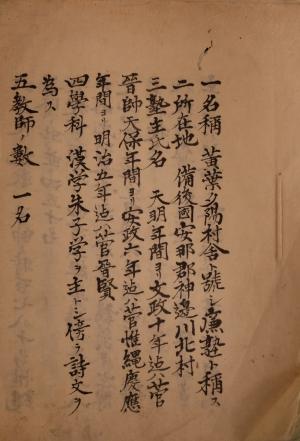 一名稱　黄葉夕陽村舎ト號シ廉塾ト稱ス
二所在地　備後國安那郡神邊川北村
三塾主氏名　天明年間ヨリ文政十年迠ハ菅
晉帥天保年間ヨリ安政六年迠ハ菅惟縄慶應
年間ヨリ明治五年迠ハ菅晉賢
四學科　漢学朱子学ヲ主トシ傍ラ詩文ヲ
為ス
五教師ノ數　一名